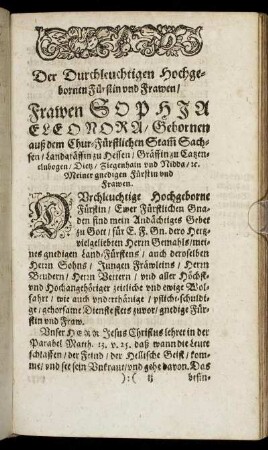 Der Durchleuchtigen Hochge-
bornen Fürstin und Frawen/
Frawen SOPHIA
ELEONORA/ Gebornen
auß dem Chur-Fürstlichen Stam̃ Sach-
sen/ Landgräffin zu Hessen/ Gräffin zu Catzen-
elnbogen/ Dietz/ Ziegenhain und Nidda/ ꝛc.
Meiner gnedigen Fürstin und
Frawen.
DUrchleuchtige Hochgeborne
Fürstin/ Ewer Fürstlichen Gna-
den sind mein Andächtiges Gebet
zu Gott/ für E. F. Gn. dero Hertz-
vielgeliebten Herrn Gemahls/ mei-
nes gnedigen Land-Fürstens/ auch deroselben
Herrn Sohns/ Jungen Fräwleins/ Herrn
Brudern/ Herrn Vetern/ und aller Höchst-
und Hochangehöriger zeitliche und ewige Wol-
fahrt/ wie auch underthänige/ pflicht-schuldi-
ge/ gehorsame Dienste stets zuvor/ gnedige Für-
stin und Fraw.
Unser HERR Jesus Christus lehret in der
Parabel Matth. 13. v. 25. daß wann die Leute
schlaffen/ der Feind/ der Hellische Geist/ kom-
me/ und see sein Unkraut/ und gehe davon. Das
):( ij
befin-